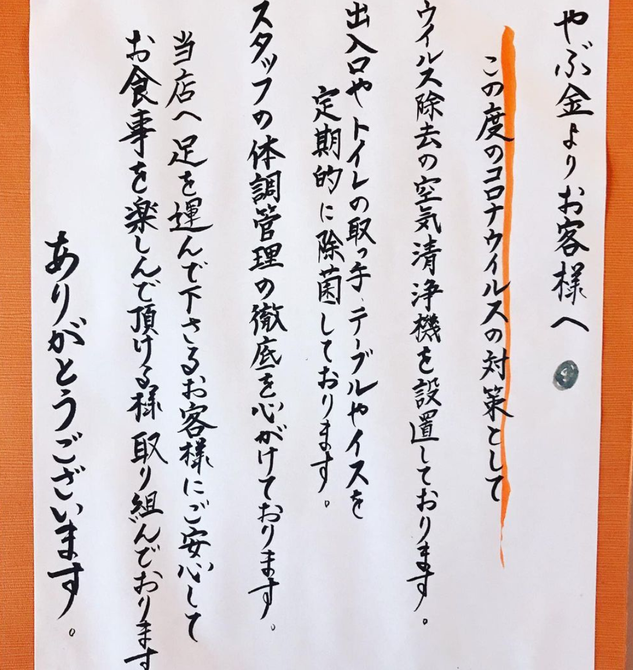 やぶ金よりお客様へ
この度のコロナウイルスの対策として
ウイルス除去の空気清浄機を設置しております。
出入口やトイレの取っ手、テーブルやイスを
定期的に除菌しております。
スタッフの体調管理の徹底を心がけております。
当店へ足を運んで下さるお客様にご安心して
お食事を楽しんで頂ける様取り組んでおります
ありがとうございます。